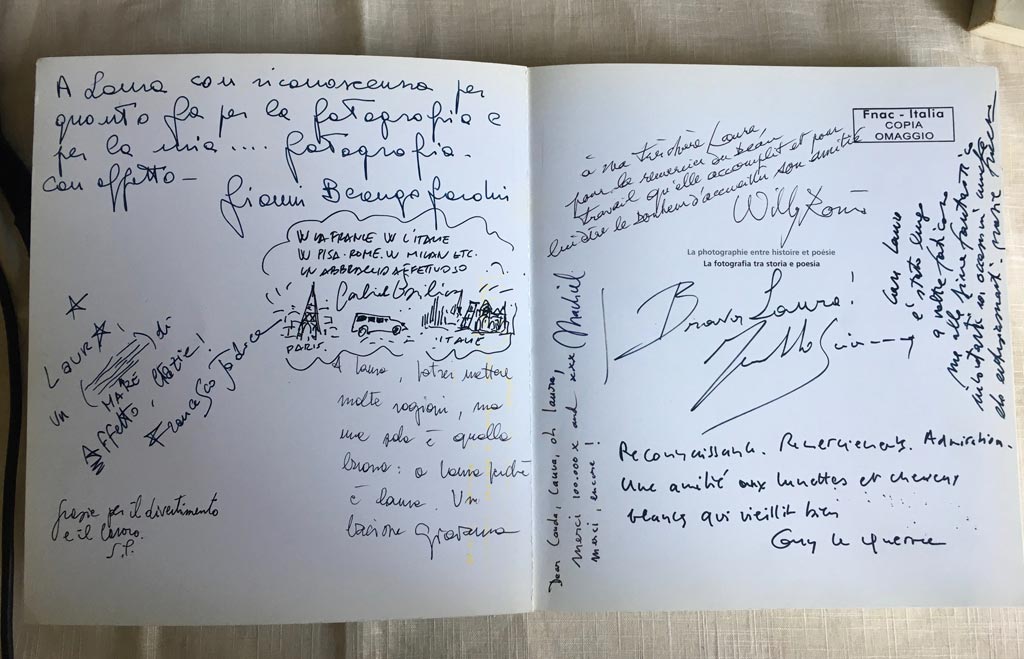 A Laura con riconoscenza per
quanto fa per la fotografia e
per la mia.... fotografia.
con affetto -
Gianni Berengo Gardin
W LA FRANCE W L'ITALIE
W PISA. ROME. W MILAN ETC.
UN ABBRACCIO AFFETTUOSO
Gabriel Basilico
PARIS
ITALIE
LAURA!
UN
MARE di
Affetto, Grazie!
Francesco Jodice
A Laura, potrei mettere
molte ragioni, ma
una sola è quella
buona: a Laura perchè
è Laura. Un
bacione Giovanna
Grazie per il divertimento
e il lavoro.
S.P.
Fnac - Italia
COPIA
OMAGGIO
à ma très chère Laura,
pour la remercier du beau
travail qu'elle accomplit et pour
lui dire le bonheur d'accueillir son amitié
Willy Ronis
La photographie entre histoire et poésie
La fotografia tra storia e poesia
Brava Laura!
Cara Laura
è stato lungo
ma alla fine
grazie
Dear Lauda, Laura, oh Laura,
merci 100.000 x and xxx Machiel
merci, encore!
Reconnaissance. Remerciements. Admiration.
Une amitié aux lunettes et cheveux
blancs qui vieillit bien
Guy le Querrec